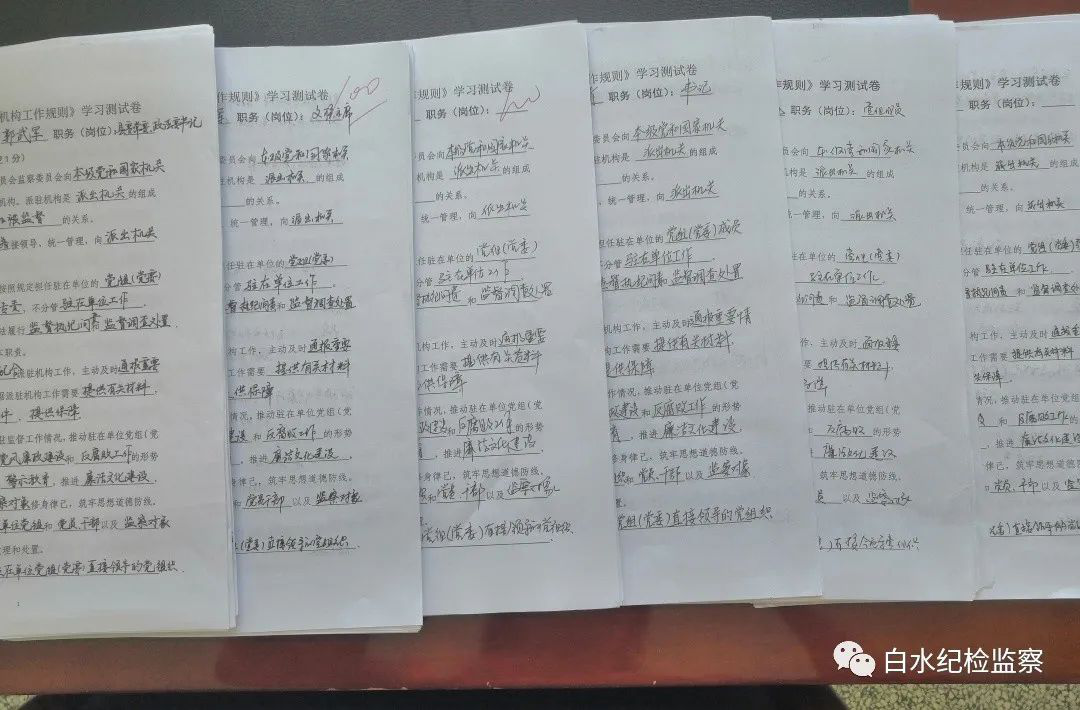 机构工作规则》学习测试卷
郭武军 职务（岗位）：县委常委、政法委书记
21分）
员会监察委员会向本级党和国家机关
机构。派驻机构是 派出机关 的组成
监督 的关系。
接领导，统一管理，向 派出机关
按照规定担任驻在单位的 党组(党委)
，不分管 驻在单位工作
法履行 监督执纪问责 监督调查处置
本职责。
派驻机构工作，主动及时 通报重要
据派驻机构工作需要 提供有关材料，
件，提供保障
驻监督工作情况，推动驻在单位党组（党
党风廉政建设 和 反腐败工作 的形势
警示教育，推进 廉洁文化建设，
修身律己，筑牢思想道德防线。
单位党组 和 党员干部 以及 监察对象
处理和处置。
驻在单位党组(党委)直接领导的党组织
1
作规则》学习测试卷
100
职务（岗位）：文 主席
委员会向 本级党和国家机关
驻机构是 派出机关 的组成
的关系。
统一管理，向 派出机关
任驻在单位的 党组(党委)
分管 驻在单位工作，
督执纪问责 和 监督调查处置
构工作，主动及时 通报重要
工作需要 提供有关材料
供保障
情况，推动驻在单位党组（党
建设 和 反腐败工作 的形势
，推进 廉洁文化建设，
身律己，筑牢思想道德防线。
和 党员干部 以及 监察对象
(党委)直接领导的党组织
作规则》学习测试卷
100
职务（岗位）：
员会向 本级党和国家机关
机构是 派出机关 的组成
的关系。
统一管理，向 派出机关
任驻在单位的 党组(党委)
分管 驻在单位工作，
执纪问责 和 监督调查处置
构工作，主动及时 通报重要
工作需要 提供有关材料
供保障
作情况，推动驻在单位党组（党
政建设 和 反腐败工作 的形势
，推进 廉洁文化建设
身律己，筑牢思想道德防线。
和 党员干部 以及 监察对象
党组(党委)直接领导的党组织
作规则》学习测试卷
职务（岗位）：书记
委员会向 本级党和国家机关
驻机构是 派出机关 的组成
的关系。
，统一管理，向 派出机关
担任驻在单位的 党组(党委)成员
分管 驻在单位工作，
督执纪问责 和 监督调查处置
机构工作，主动及时 通报重要情
工作需要 提供有关材料
提供保障
作情况，推动驻在单位党组（党
政建设 和 反腐败工作 的形势
育，推进 廉洁文化建设，
修身律己，筑牢思想道德防线。
和 党员、干部 以及 监察对象
党组(党委)直接领导的党组织
作规则》学习测试卷
职务（岗位）：党组成员
员会向 本级党和国家机关
机构是 派出机关 的组成
的关系。
统一管理，向 派出机关
任驻在单位的 党组(党委)
分管 驻在单位工作，
纪问责 和 监督调查处置
构工作，主动及时
要 提供有关材料，
情况，推动驻在单位党组（党
反腐败 的形势
廉洁文化建设
身律己，筑牢思想道德防线。
员 以及 监察对象
规则》学习测试卷
职务（岗位）：
委员会向 本级党和国家机关
驻机构是 派出机关 的组成
的关系。
统一管理，向 派出机关
任驻在单位的 党组(党委)
分管 驻在单位工作，
督执纪问责 和 监督调查处
构工作，主动及时 通报
工作需要 提供有关材料
供保障，
情况，推动驻在单位党组（
和 反腐败工作的
，推进 廉洁文化建设
律己，筑牢思想道德防线。
和 党员、干部 以及
直接领导的
白水纪检监察